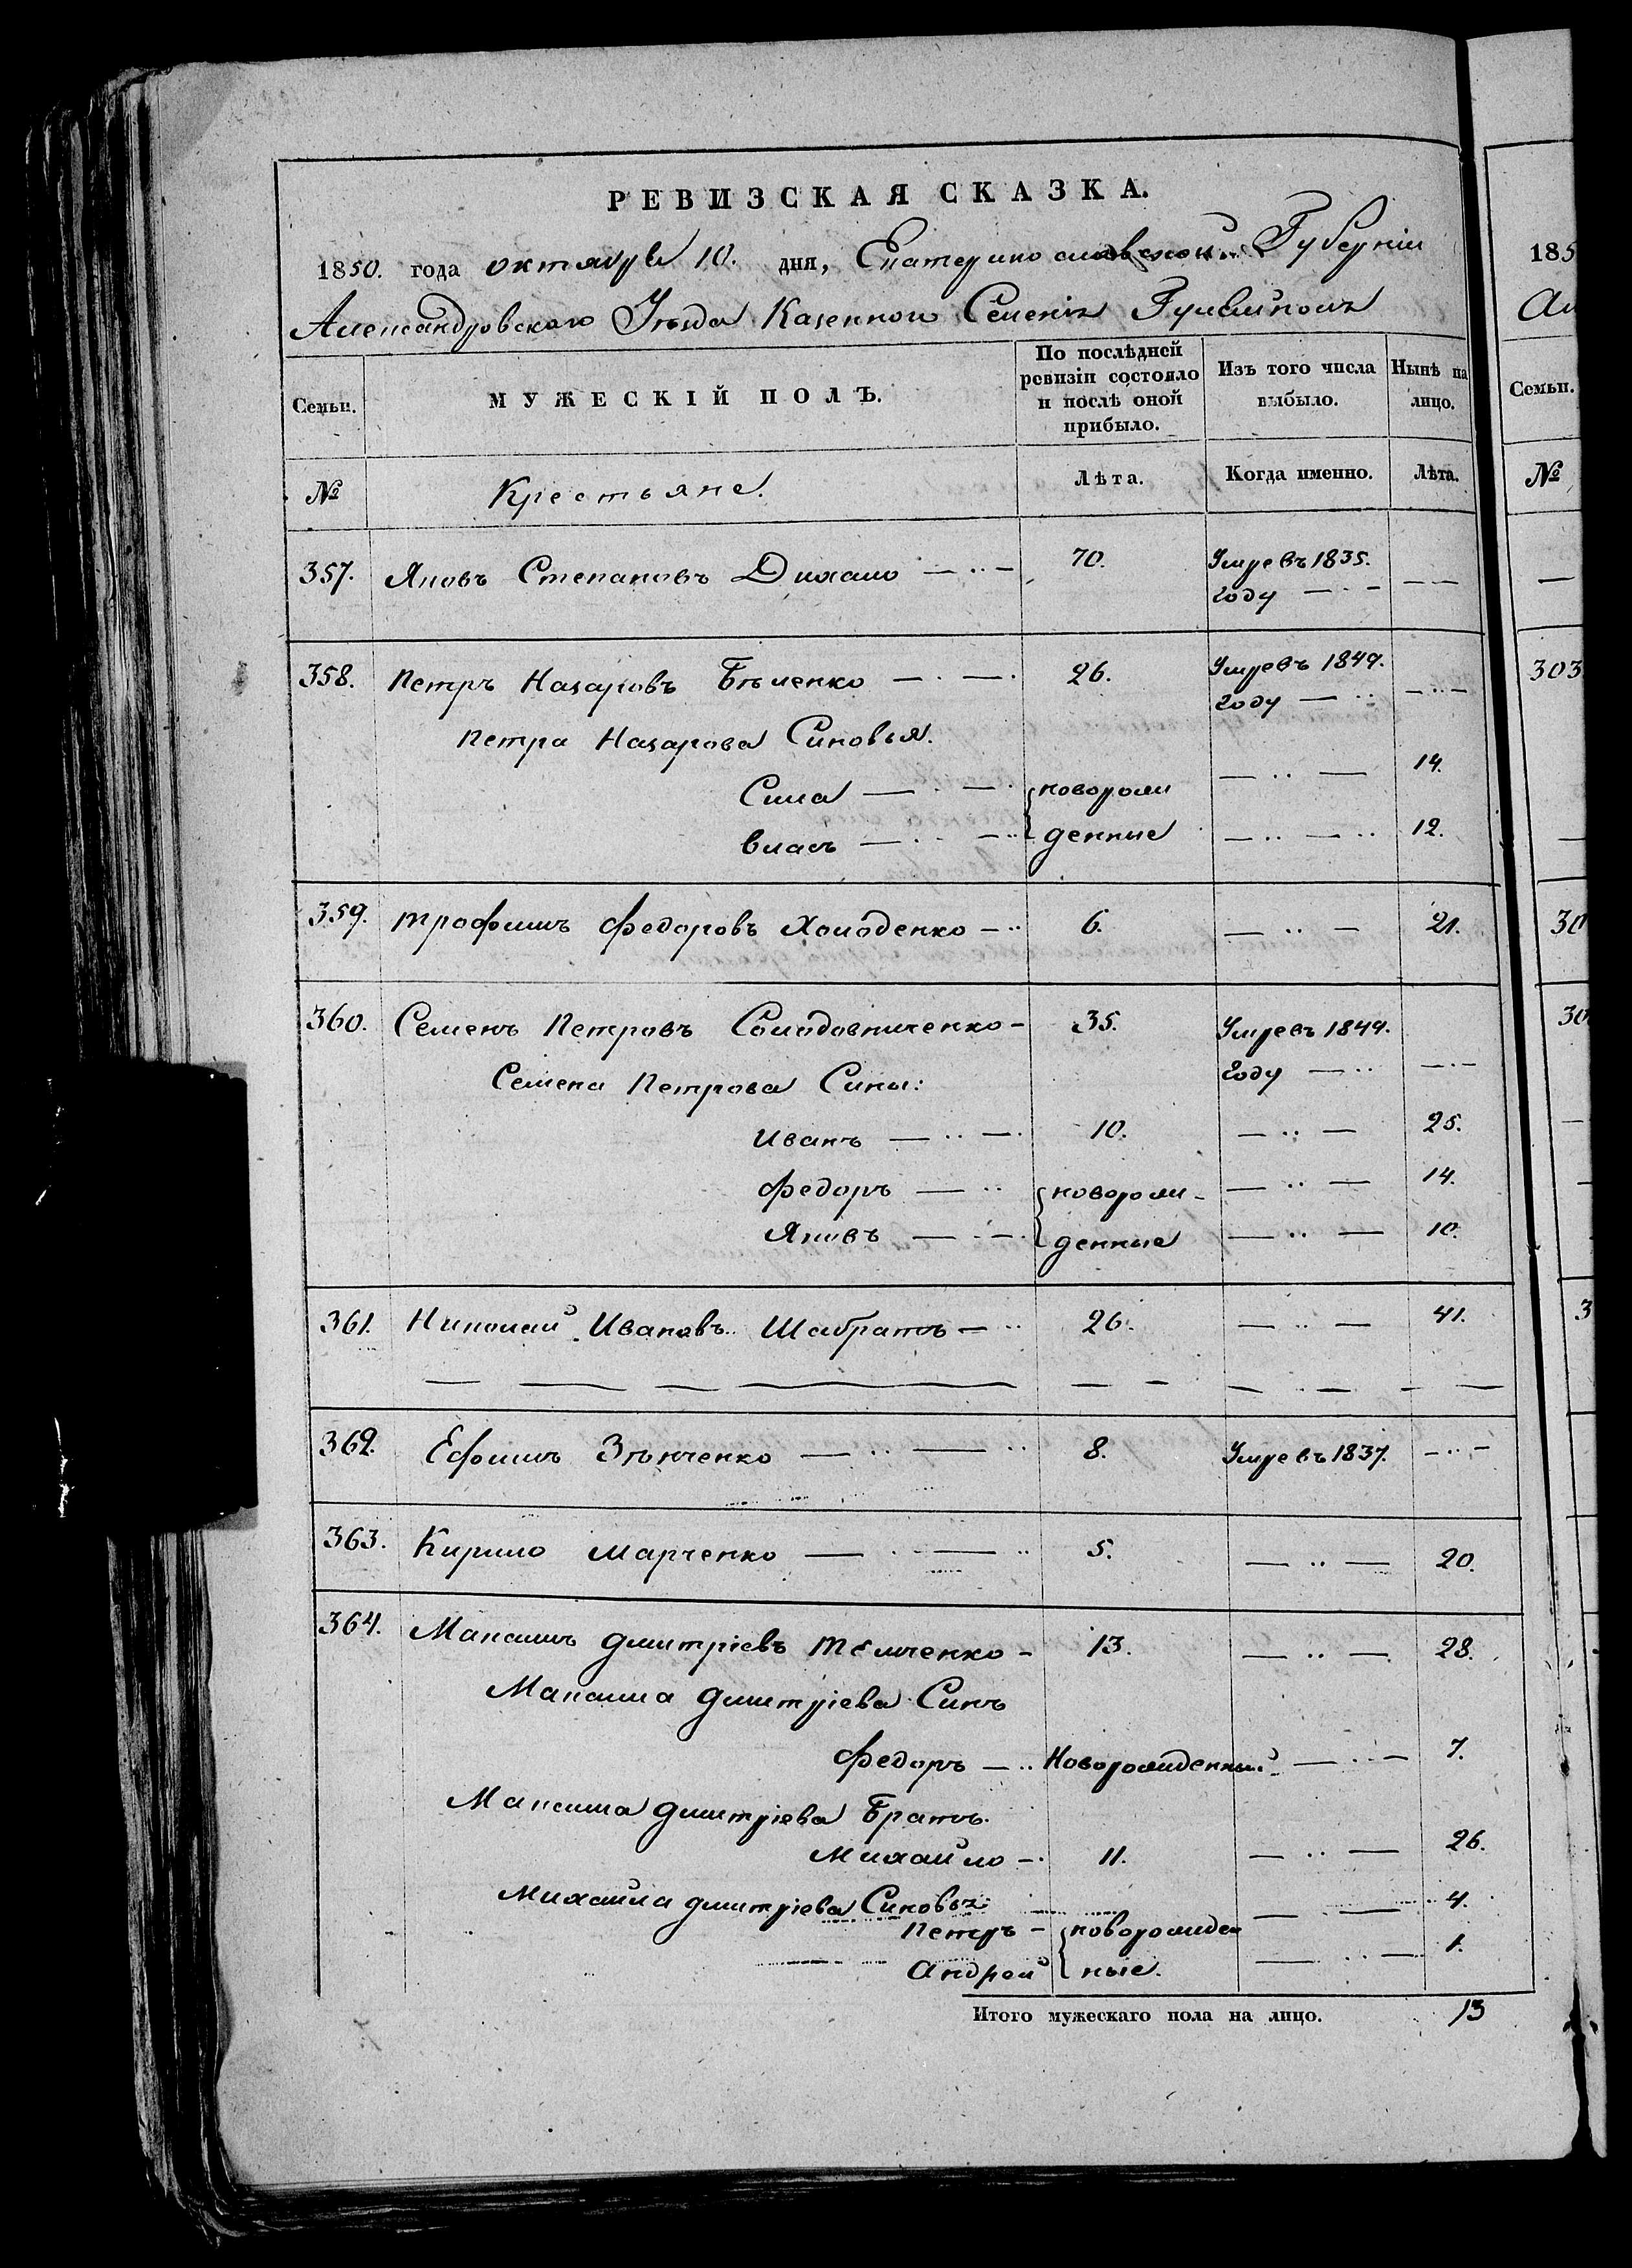 РЕВИЗСКАЯ СКАЗКА.
1850. года октября 10. дня, Екатеринославской Губерніи
Александровского Уезда Казенном Селеніи Гуляйполъ
Семьи. МУЖЕСКІЙ ПОЛЪ. По послѣдней ревизіи состояло и послѣ оной прибыло. Изъ того числа выбыло. Нынѣ на лицо.
№ Крестьяне. Лѣта. Когда именно. Лѣта.
357. Яковъ Степановъ Дихало — 70. Умре въ 1835.
году —
358. Петръ Назаровъ Бѣленко — 26. Умре въ 1849.
году —
Петра Назарова Синовья.
Сила — новорож — 14.
Власъ — денные — 12.
359. Трофимъ Федоровъ Холоденко — 6. — 21.
360. Семенъ Петровъ Солодовниченко — 35. Умре въ 1844.
году —
Семена Петрова Сины:
Иванъ — 10. — 25.
Федоръ — новорож- — 14.
Яковъ — денные — 10.
361. Николай Ивановъ Шабратъ — 26. — 41.
362. Ефимъ Зѣнченко — 8. Умре въ 1837. —
363. Кирило Марченко — 5. — 20.
364. Максимъ Дмитріевъ Темченко — 13. — 28.
Максима Дмитріева Синъ
Федоръ — Новорожденный — 7.
Максима Дмитріева Братъ.
Михайло — 11. — 26.
Михайла Дмитріева Синовья:
Петръ — новорожден — 4.
Андрей ные. — 1.
Итого мужескаго пола на лицо. 13
185
Ал
Семьи.
№
303
30
30
3